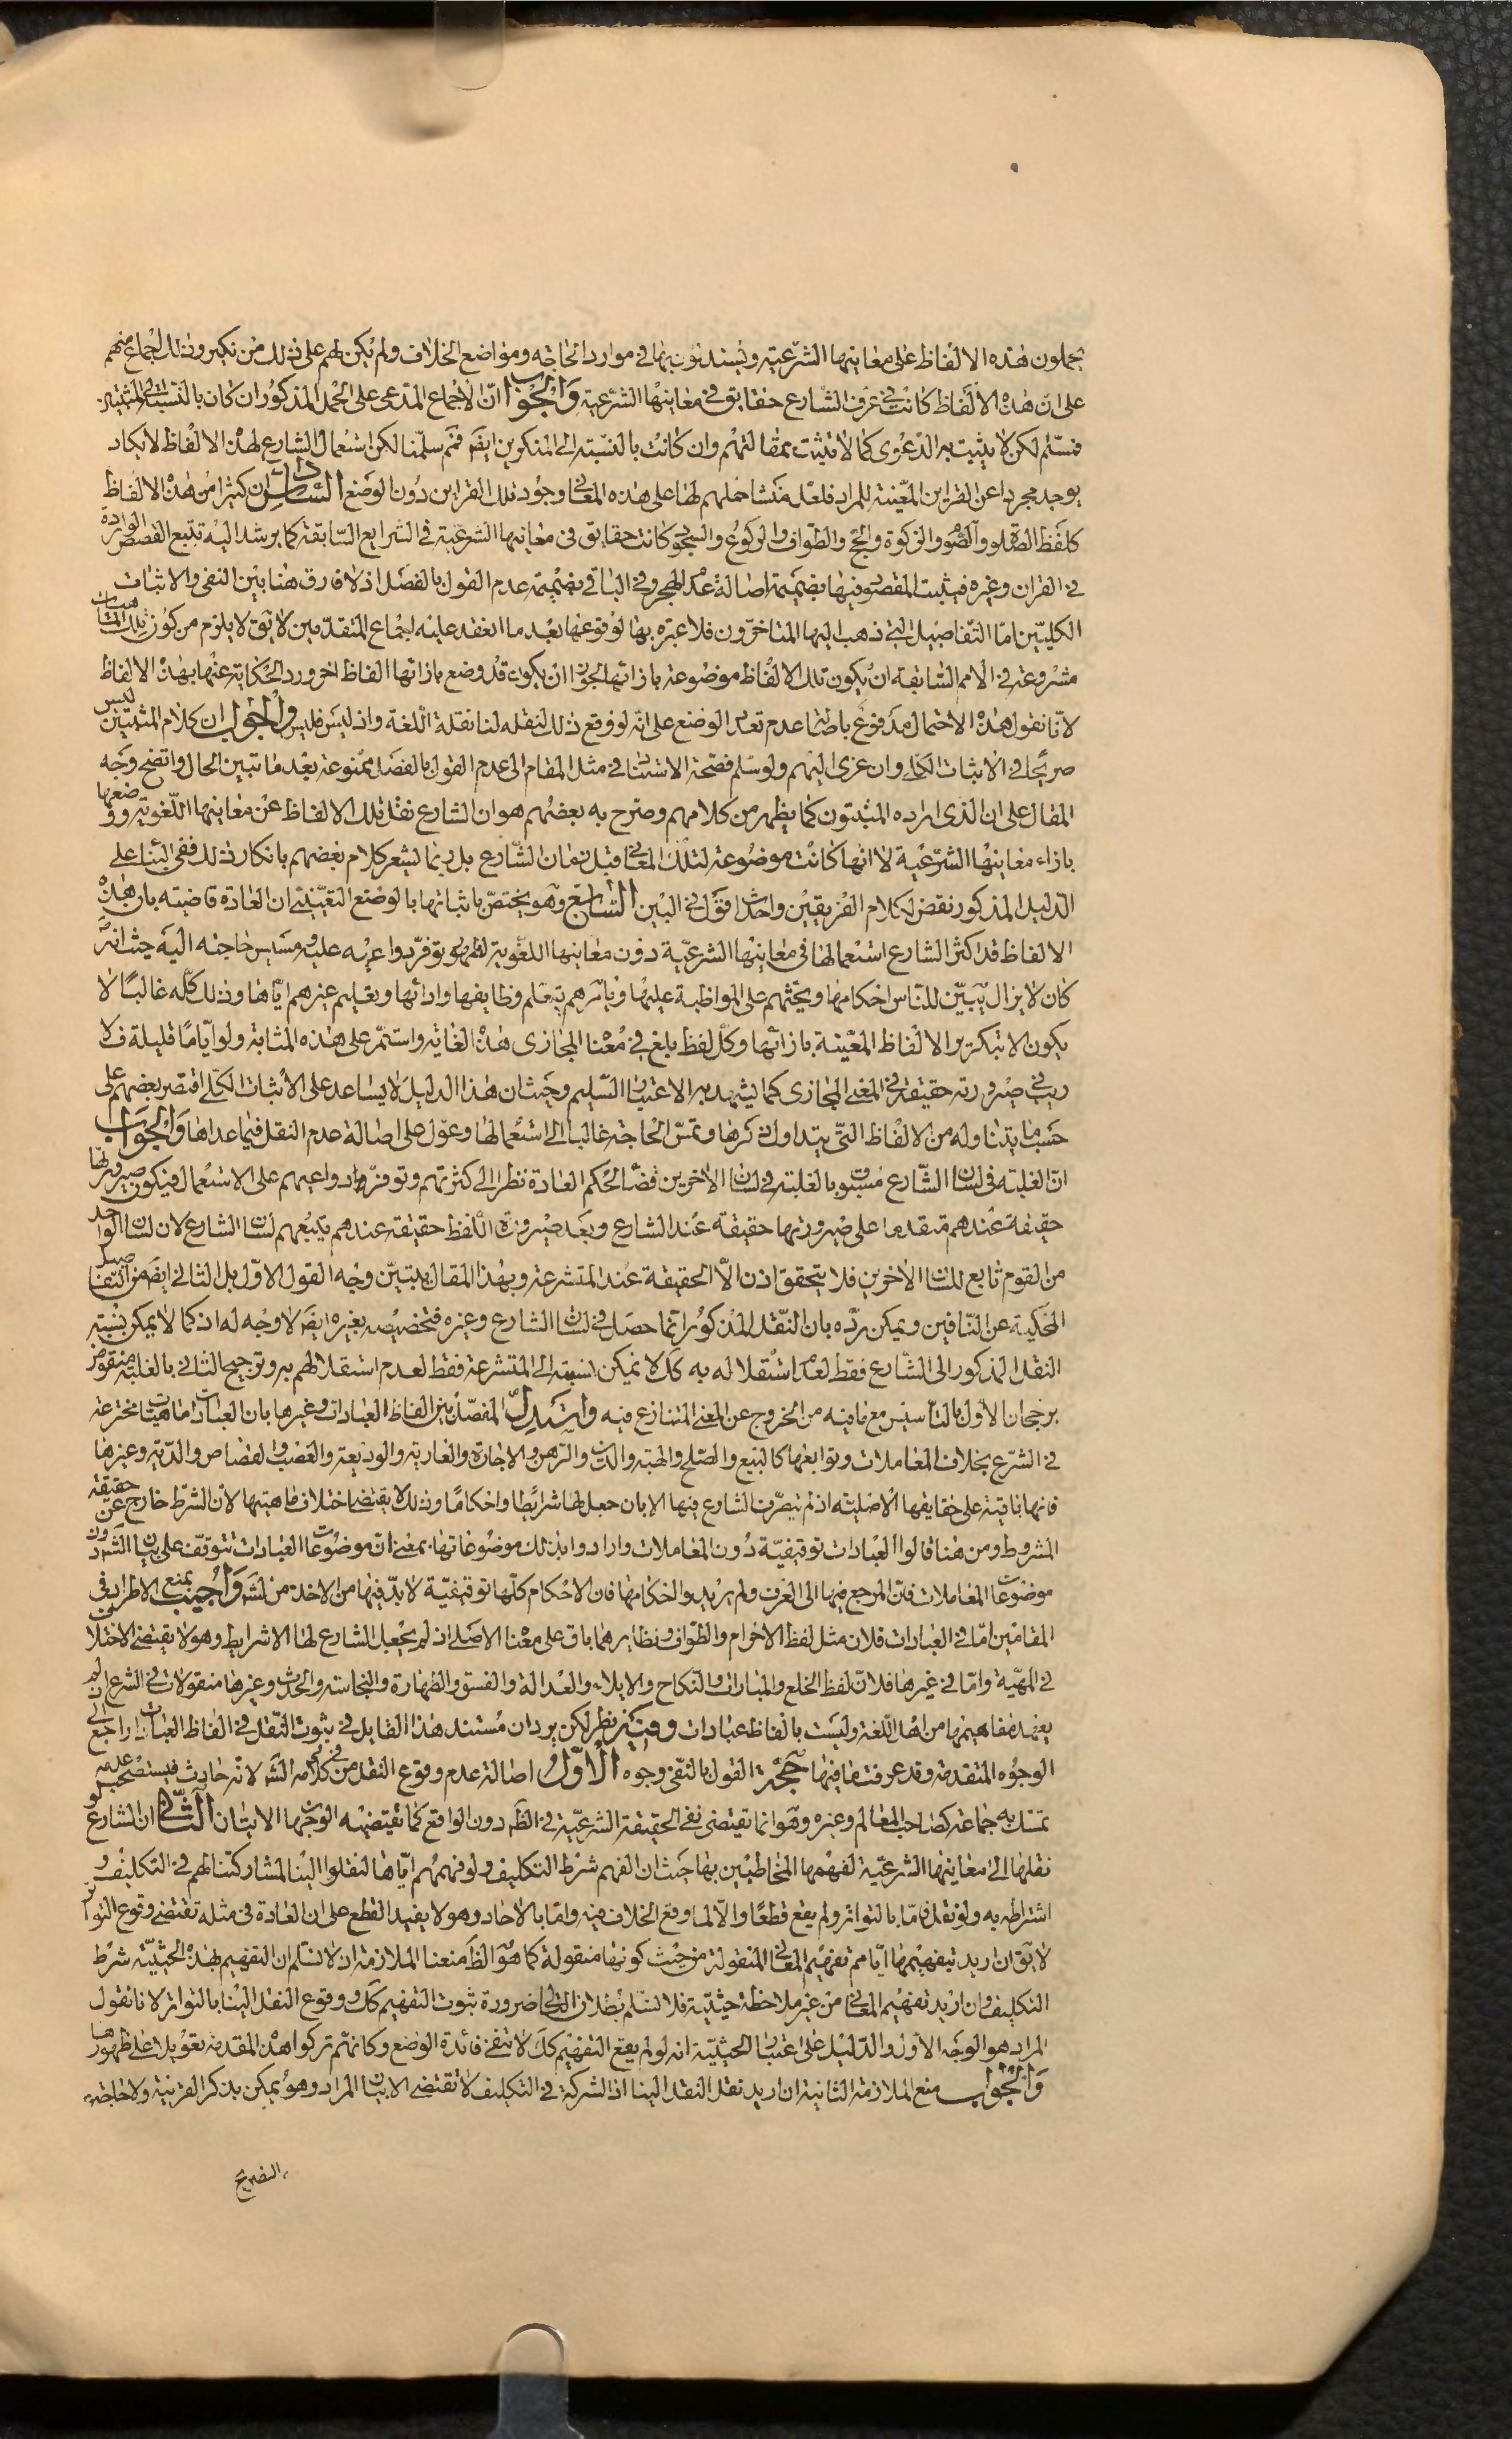 يحملون هذه الالفاظ على معانيها الشرعية ويستدلون بها في موارد الحاجة ومواضع الخلاف ولم يكن لهم على ذلك من نكير وذلك اجماع منهم
على ان هذه الالفاظ كانت في عرف الشارع حقايق في معانيها الشرعية والجواب ان الاجماع المدعى على الحمل المذكور ان كان بالنسبة الى المثبتين
فمسلم لكن لا يثبت به الدعوى كما لا يثبت بمقالتهم وان كانت بالنسبة الى المنكرين ايضا فمم سلمنا لكن استعمال الشارع لهذه الالفاظ لا يكاد
يوجد مجردا عن القراين المعينة للمراد فلعل منشا حملهم لها على هذه المعاني وجود تلك القراين دون الوضع السادس ان كثيرا من هذه الالفاظ
كلفظ الصلوة والصوم والزكوة والحج والطواف والركوع والسجود كانت حقايق في معانيها الشرعية في الشرايع السابقة كما يرشد اليه تتبع القصص الواردة
في القران وغيره فيثبت المقصود فيها بضميمة اصالة عدم الهجر وفي الباقي بضميمة عدم القول بالفصل اذ لا فارق هنا بين النفي والاثبات
الكليين اما التفاصيل التي ذهب اليها المتاخرون فلا عبرة بها لوقوعها بعد ما انعقد عليه اجماع المتقدمين لا يق لا يلزم من كون تلك الماهيات
مشروعة في الامم السابقة ان يكون تلك الالفاظ موضوعة بازائها لجواز ان يكون قد وضع بازائها الفاظ اخر ورد الحكاية عنها بهذه الالفاظ
لانا نقول هذا الاحتمال مدفوع باصالة عدم تعدد الوضع على انه لو وقع ذلك لنقله لنا نقلة اللغة واذ ليس فليس والجواب ان كلام المثبتين ليس
صريحا في الاثبات الكلي وان عزى اليهم ولو سلم فصحة الاستناد في مثل المقام الى عدم القول بالفصل ممنوعة بعد ما تبين الحال واتضح وجه
المقال على ان الذي اراده المثبتون كما يظهر من كلامهم وصرح به بعضهم هو ان الشارع نقل تلك الالفاظ عن معانيها اللغوية ووضعها
بازاء معانيها الشرعية لا انها كانت موضوعة لتلك المعاني قبل زمان الشارع بل ربما يشعر كلام بعضهم بانكار ذلك ففي البناء على
الدليل المذكور نقض لكلام الفريقين واحداث قول في البين السابع وهو يختص باثباتها بالوضع التعيني ان العادة قاضية بان هذه
الالفاظ قد اكثر الشارع استعمالها في معانيها الشرعية دون معانيها اللغوية لظهور توفر دواعيه عليه ومسيس حاجته اليه حيث انه
كان لا يزال يبين للناس احكامها ويحثهم على المواظبة عليها ويامرهم بتعلم وظايفها وادائها وتعليم غيرهم اياها وذلك كله غالبا لا
يكون الا بتكرير الالفاظ المعينة بازائها وكل لفظ بلغ في معناه المجازي هذه الغاية واستمر على هذه المثابة ولو اياما قليلة فلا
ريب في صيرورته حقيقة في المعنى المجازي كما يشهد به الاعتبار السليم وحيث ان هذا الدليل لا يساعد على الاثبات الكلي اقتصر بعضهم على
حسب ما يتناوله من الالفاظ التي يتداول ذكرها وتمس الحاجة غالبا الى استعمالها وعول على اصالة عدم النقل فيما عداها والجواب
ان الغلبة في لسان الشارع مسبوق بالغلبة في لسان الاخرين قضاء لحكم العادة نظرا الى كثرتهم وتوفر دواعيهم على الاستعمال فيكون صيرورتها
حقيقة عندهم متقدما على صيرورتها حقيقة عند الشارع وبعد صيرورة اللفظ حقيقة عندهم يتبعهم لسان الشارع لان لسان الواحد
من القوم تابع للسان الاخرين فلا يتحقق اذن الا الحقيقة عند المتشرعة وبهذا المقال يتبين وجه القول الاول بل الثاني ايضا من التفاصيل
المحكية عن النافين ويمكن رده بان النقل المذكور انما حصل في لسان الشارع وغيره فتخصيصه بغيره ايضا لا وجه له اذ كما لا يمكن نسبة
النقل المذكور الى الشارع فقط لعدم استقلاله به كذا لا يمكن نسبته الى المتشرعة فقط لعدم استقلالهم به وترجيح الثاني بالغلبة منقوض
برجحان الاول بالتاسيس مع ما فيه من الخروج عن المعنى المتنازع فيه واستدل المفصل بين الفاظ العبادات وغيرها بان العبادات ماهيات مخترعة
في الشرع بخلاف المعاملات وتوابعها كالبيع والصلح والهبة والدين والرهن والاجارة والعارية والوديعة والغصب والقصاص والدية وغيرها
فانها باقية على حقايقها الاصلية اذ لم يتصرف الشارع فيها الا بان جعل لها شرائط واحكاما وذلك لا يقتضي اختلاف ماهيتها لان الشرط خارج عن حقيقة
المشروط ومن هنا قالوا العبادات توقيفية دون المعاملات وارادوا بذلك موضوعاتها بمعنى ان موضوعات العبادات تتوقف على بيان الشرع دون
موضوعات المعاملات فان المرجع فيها الى العرف ولم يريدوا احكامها فان الاحكام كلها توقيفية لا بد فيها من الاخذ من الشرع واجيب بمنع الاطراد في
المقامين اما في العبادات فلان مثل لفظ الاحرام والطواف ونظايرهما باق على معناه الاصلي اذ لم يجعل الشارع لها الا شرايط وهو لا يقتضي الاختلاف
في المهية واما في غيرها فلان لفظ الخلع والمبارات والنكاح والايلاء والعدالة والفسق والطهارة والنجاسة والحدث وغيرها منقولات في الشرع اذ لم
يعهد مفاهيمها من اهل اللغة وليست بالفاظ عبادات وفيه نظر لكن يرد ان مستند هذا القايل في ثبوت النقل في الفاظ العبادات راجع الى
الوجوه المتقدمة وقد عرفت ما فيها حجة القول بالنفي وجوه الاول اصالة عدم وقوع النقل من في كلامه الش لانه حادث فيستصحب عدمه
تمسك به جماعة كصاحب المعالم وغيره وهو انما تقتضي نفي الحقيقة الشرعية في الظ دون الواقع كما يقتضيه الوجهان الاتيان الثاني ان الشارع لو
نقلها الى معانيها الشرعية لفهمها المخاطبين بها حيث ان الفهم شرط التكليف ولو فهمهم اياها لنقلوا الينا لمشاركتنا لهم في التكليف و
اشتراطه به ولو نقل فاما بالتواتر ولم يقع قطعا والا لما وقع الخلاف فيه واما بالاحاد وهو لا يفيد القطع على ان العادة في مثله تقتضي وقوع التواتر
لا يق ان اريد بتفهيمها اياهم تفهيم المعاني المنقولة من حيث كونها منقولة كما هو الظ منعنا الملازمة اذ لا نسلم ان التفهيم بهذه الحيثية شرط
التكليف وان اريد تفهيم المعاني من غير ملاحظة حيثية فلا نسلم بطلان التالي ضرورة ثبوت التفهيم كك ووقوع النقل الينا بالتواتر لانا نقول
المراد هو الوجه الاول والدليل على اعتبار الحيثية انه لو لم يقع التفهيم كك لانتفى فائدة الوضع وكانهم تركوا هذه المقدمة تعويلا على ظهورها
والجواب منع الملازمة الثانية ان اريد نقل النقل الينا اذ الشركة في التكليف لا تقتضي الا بيان المراد وهو يمكن بذكر القرينة ولا حاجة